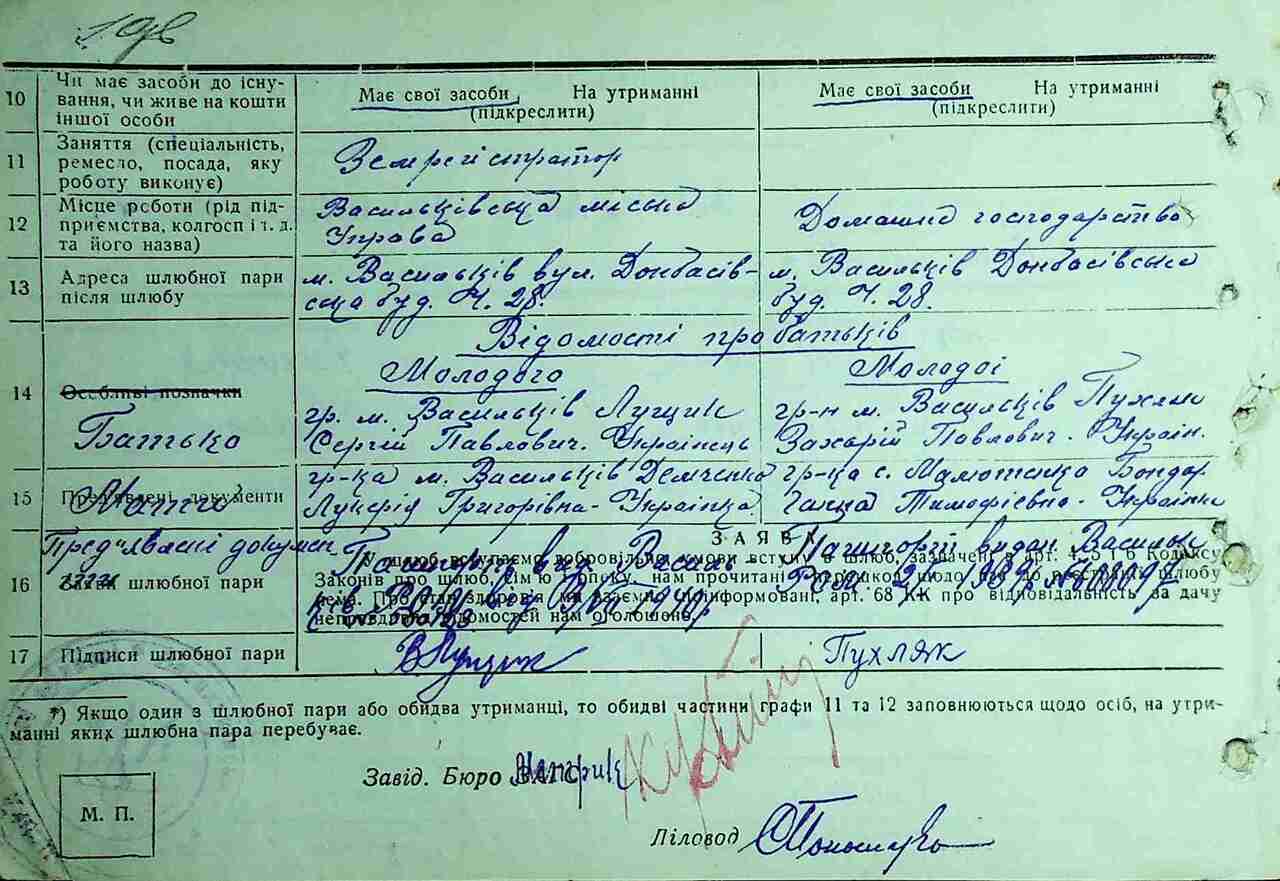 198
10 Чи має засоби до існу-
вання, чи живе на кошти
іншої особи
Має свої засоби На утриманні
(підкреслити)
Має свої засоби На утриманні
(підкреслити)
11 Заняття (спеціальність,
ремесло, посада, яку
роботу виконує)
Земреєстратор
12 Місце роботи (рід під-
приємства, колгосп і т. д.
та його назва)
Васильківська міська
Управа
Домашнє господарство
13 Адреса шлюбної пари
після шлюбу
м. Васильків вул. Донбасів-
ська буд. Ч. 28.
м. Васильків Донбасівська
буд. Ч. 28.
Відомості про батьків
Молодого
Молодої
14 Особливі позначки
Батько
гр. м. Васильків Лущик
Сергій Павлович. Українець
гр-н м. Васильків Пухляк
Захарій Павлович. Україн.
15 Пред'явлені документи
Мати
гр-ка м. Васильків Демченко
Лукерія Григорівна - Українка
гр-ка с. Бондар
Ганна Тимофієвна - Українка
ЗАЯВА
Пред'явлені докумен
16 шлюбної пари
У шлюб вступаємо добровільно, умови вступу в шлюб, зазначені в арт. 4, 5 і 6 Кодексу
Законів про шлюб, сім'ю опіку, нам прочитані перешкод щодо до реєстрації шлюбу
нема. Про стан здоров'я ми взаємно поінформовані, арт. 68 КК про відповідальність за дачу
неправдивих відомостей нам оголошено.
17 Підписи шлюбної пари
В Лущик
Пухляк
*) Якщо один з шлюбної пари або обидва утриманці, то обидві частини графи 11 та 12 заповнюються щодо осіб, на утри-
манні яких шлюбна пара перебуває.
Завід. Бюро
М. П.
Діловод